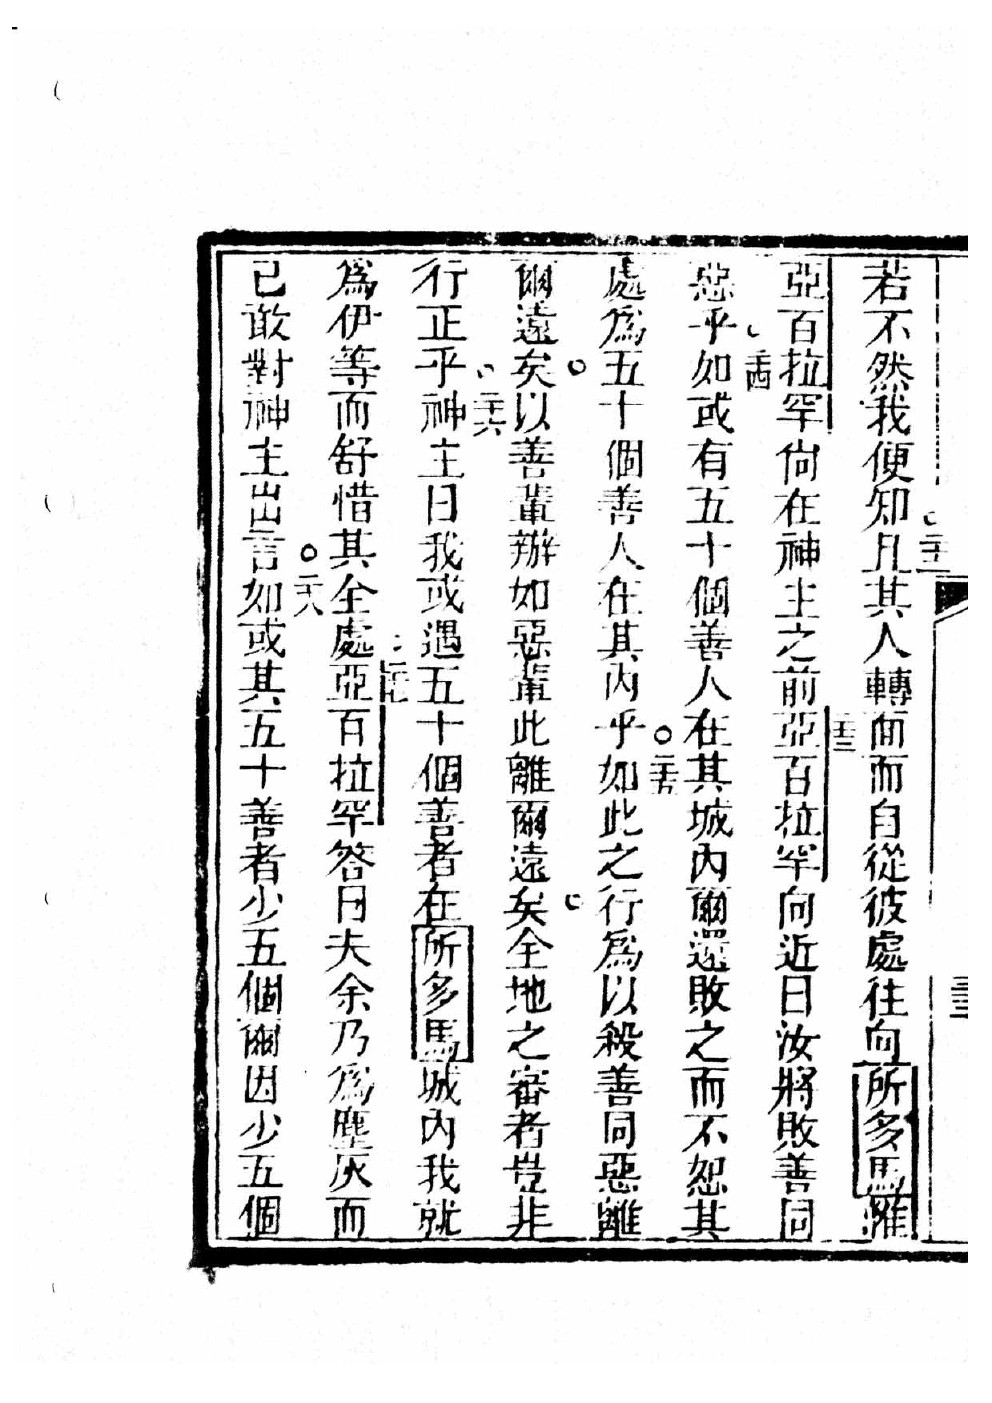 若不然我便知且其人轉面而自從彼處往向所多馬離
二十二
亞百拉罕尙在神主之前亞百拉罕向近曰汝將敗善同
二十三
惡乎如或有五十個善人在其城內爾還敗之而不恕其
二十四
處爲五十個善人在其內乎如此之行爲以殺善同惡離
二十五
爾遠矣以善輩辦如惡輩此離爾遠矣全地之審者豈非
行正乎神主曰我或遇五十個善者在所多馬城內我就
二十六
爲伊等而舒惜其全處亞百拉罕答曰夫余乃爲塵灰而
二十七
已敢對神主出言如或其五十善者少五個爾因少五個
二十八